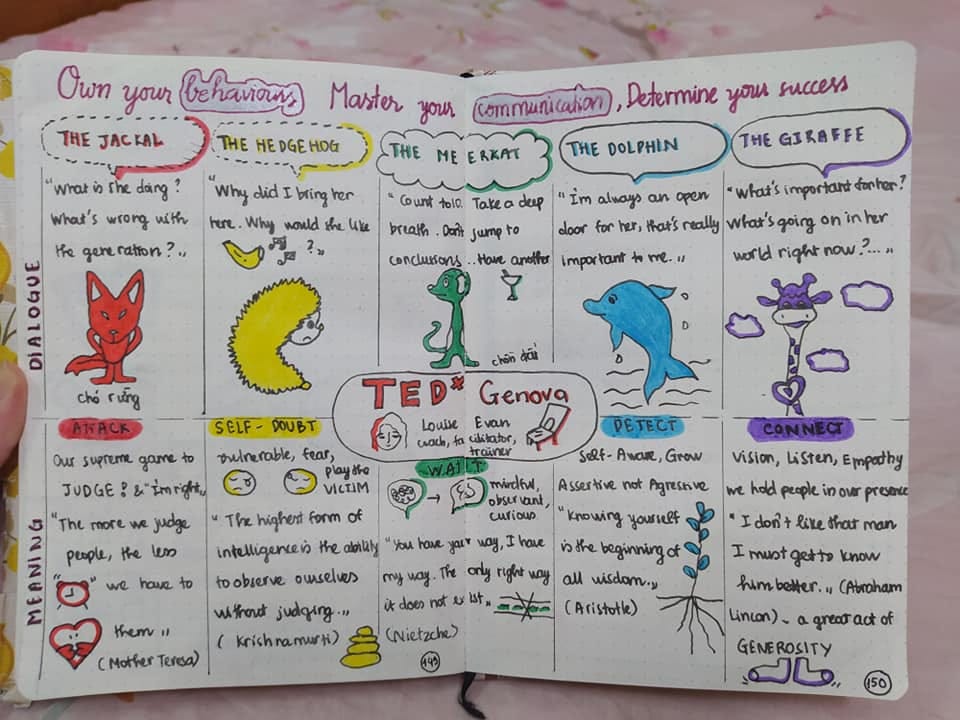 Own your behaviours, Master your communication, Determine your success
DIALOGUE
THE JACKAL
"What is she doing?
What's wrong with
the generation?.."
chó rừng
THE HEDGEHOG
"Why did I bring her
here. Why would she like
?"
THE MEERKAT
"Count to 10. Take a deep
breath. Don't jump to
conclusions... Have another
chồn đất
THE DOLPHIN
"I'm always an open
door for her, that's really
important to me."
THE GIRAFFE
"What's important for her?
What's going on in her
world right now?..."
TEDx Genova
Louise Evan
coach, facilitator,
trainer
MEANING
ATTACK
Our supreme game to
JUDGE! & "I'm right"
"The more we judge
people, the less
we have to
them"
(Mother Teresa)
SELF-DOUBT
vulnerable, fear,
play the
VICTIM
"The highest form of
intelligence is the ability
to observe ourselves
without judging."
(Krishnamurti)
WAIT
mindful,
observant,
curious
"You have your way, I have
my way. The only right way
it does not exist"
(Nietzche)
149
DETECT
Self-Aware, Grow
Assertive not Agressive
"Knowing yourself
is the beginning of
all wisdom"
(Aristotle)
CONNECT
Vision, Listen, Empathy
we hold people in our presence
"I don't like that man
I must get to know
him better." (Abraham
Lincon) ~ a great act of
GENEROSITY
150